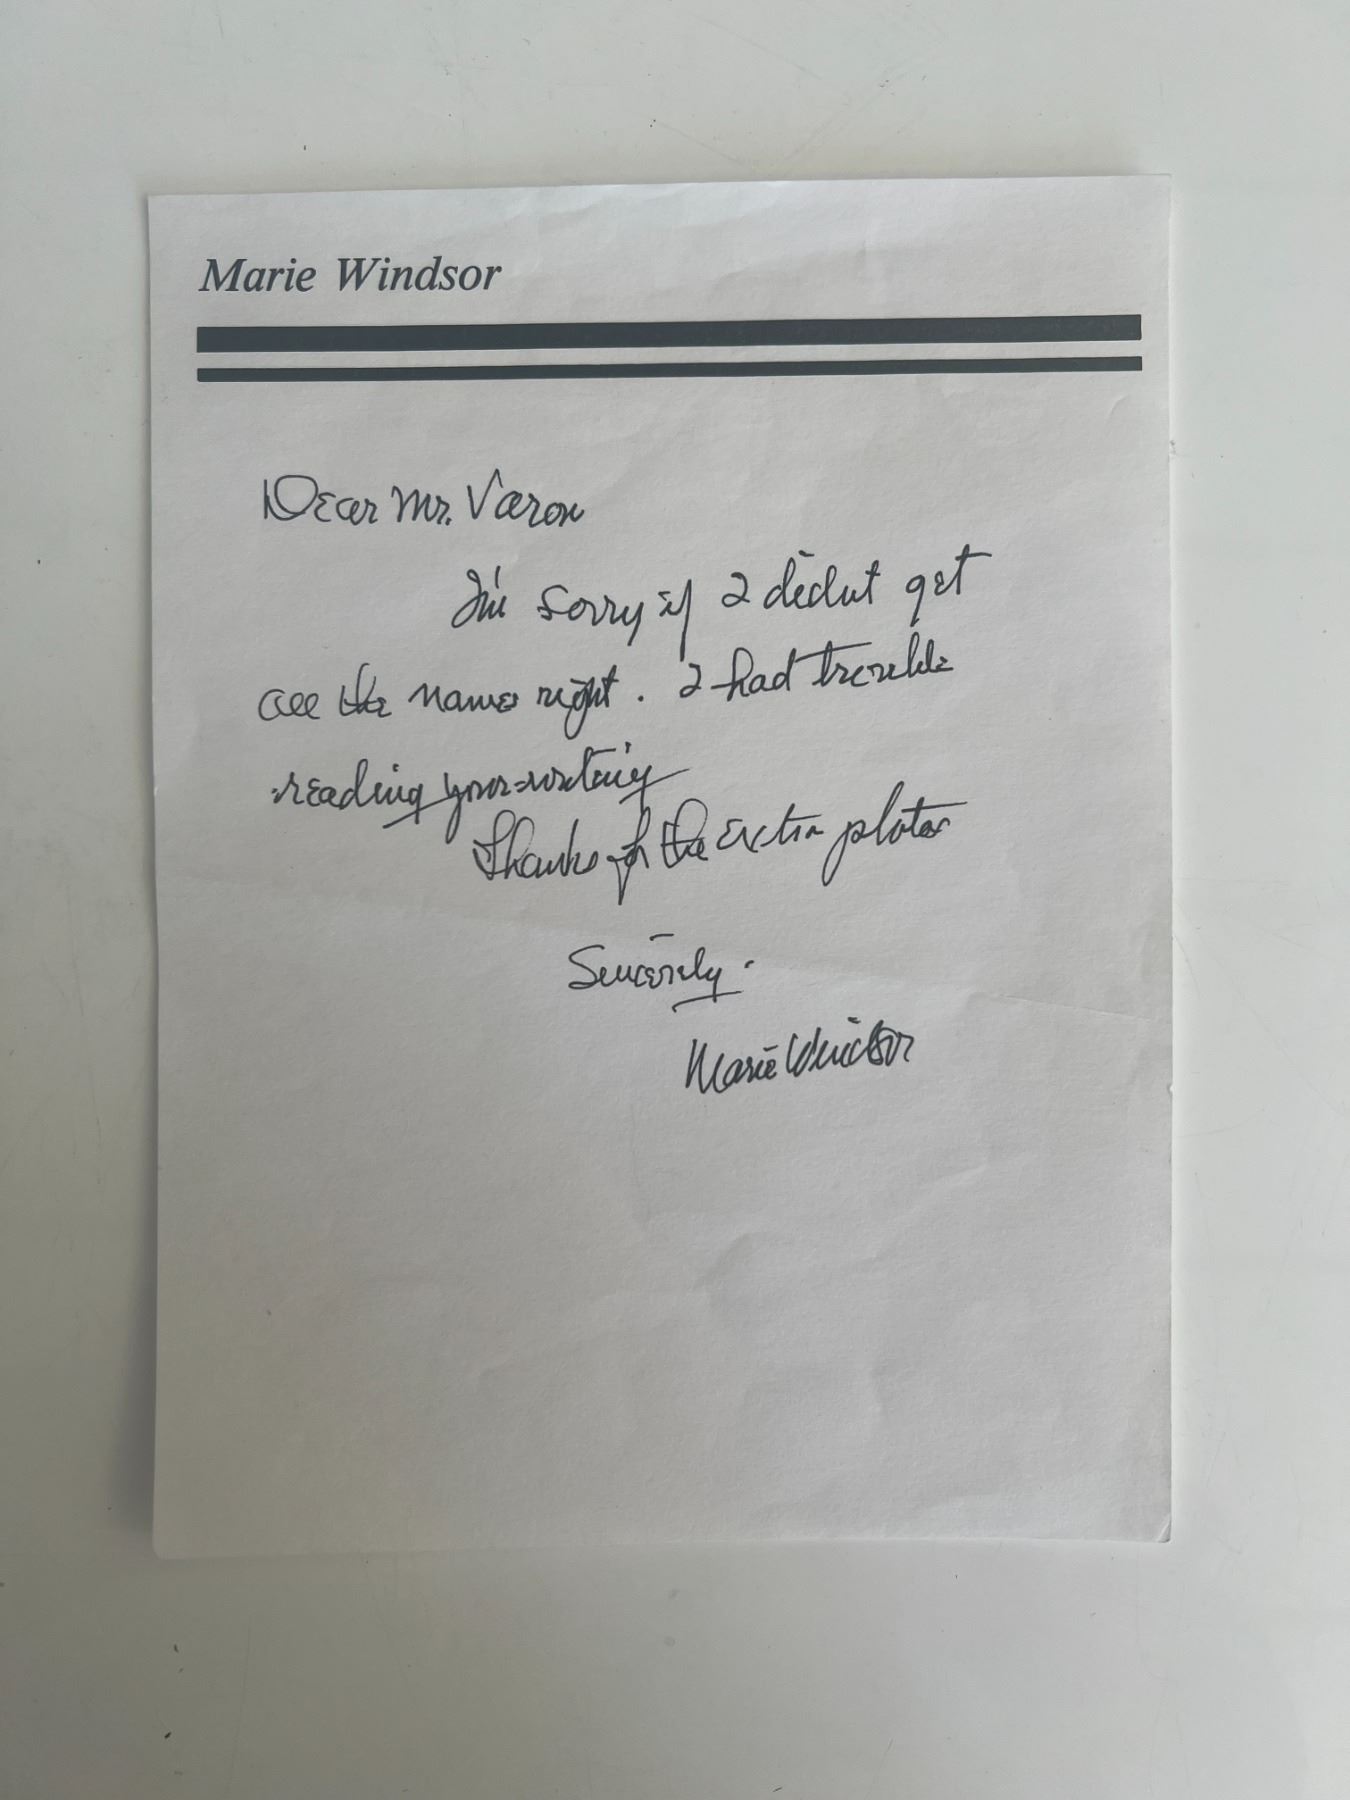 Marie Windsor
Dear Mr. Varon
I'm sorry if I didnt get
all the names right. I had trouble
reading your writing
Thanks for the extra photos
Sincerely.
Marie Windsor